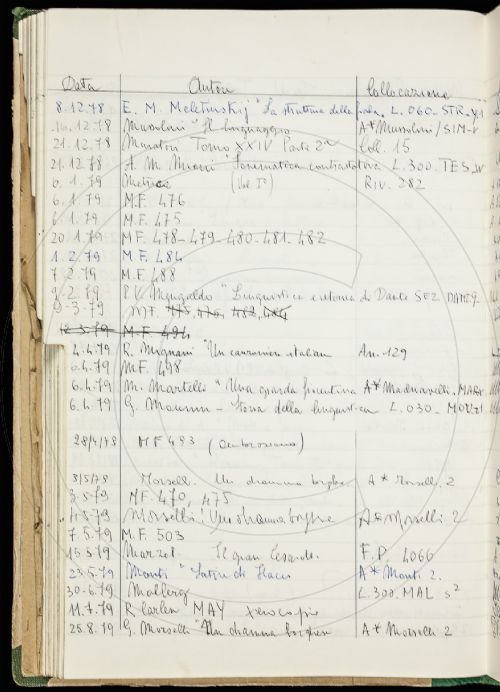 Data Autori Collocazione
8.12.78 E. M. Meletinskij "La struttura della fiaba. L. 060. STR.
16.12.78 Mussolini "Il linguaggio A* Mussolini/SIM-
21.12.78 Muratori Tomo XXIV Parte 2a Coll. 15
21.12.78 A. M. L. 300. TES.
6.1.79 Metrica (Vol I°) Riv. 282
6.1.79 M.F. 476
1.79 M.F. 475
20.1.79 MF. 478-479-480-481-482
1.2.79 M.F. 484
7.2.79 M.F. 488
2.79 P.V. Mengaldo "Linguistica e retorica di Dante SEZ. DANTE 9.
9-3-79 MF.
12.3.79 M.F. 494
4.4.79 R. Mignani "Un canzoniere italiano An. 129
6.4.79 MF. 498
6.4.79 M. Martelli "Una giarda fiorentina A* Machiavelli. MAR
6.4.79 G. Mounin - Storia della linguistica L. 030. MOU
28/4/78 MF 493 (Ambrosiana)
3/5/79 Morselli. Un dramma borghese A * Morselli. 2
3.5.79 MF. 470, 475
4.5.79 Morselli: Un dramma borghese A * Morselli 2
7.5.79 M.F. 503
15.5.79 Il gran F.P. 4066
23.5.79 Monti " Satire di A* Monti 2.
30-6.79 Malberg L. 300. MAL s²
11.7.79 R. MAY xerocopie
25.8.79 G. Morselli "Un dramma borghese A* Morselli 2